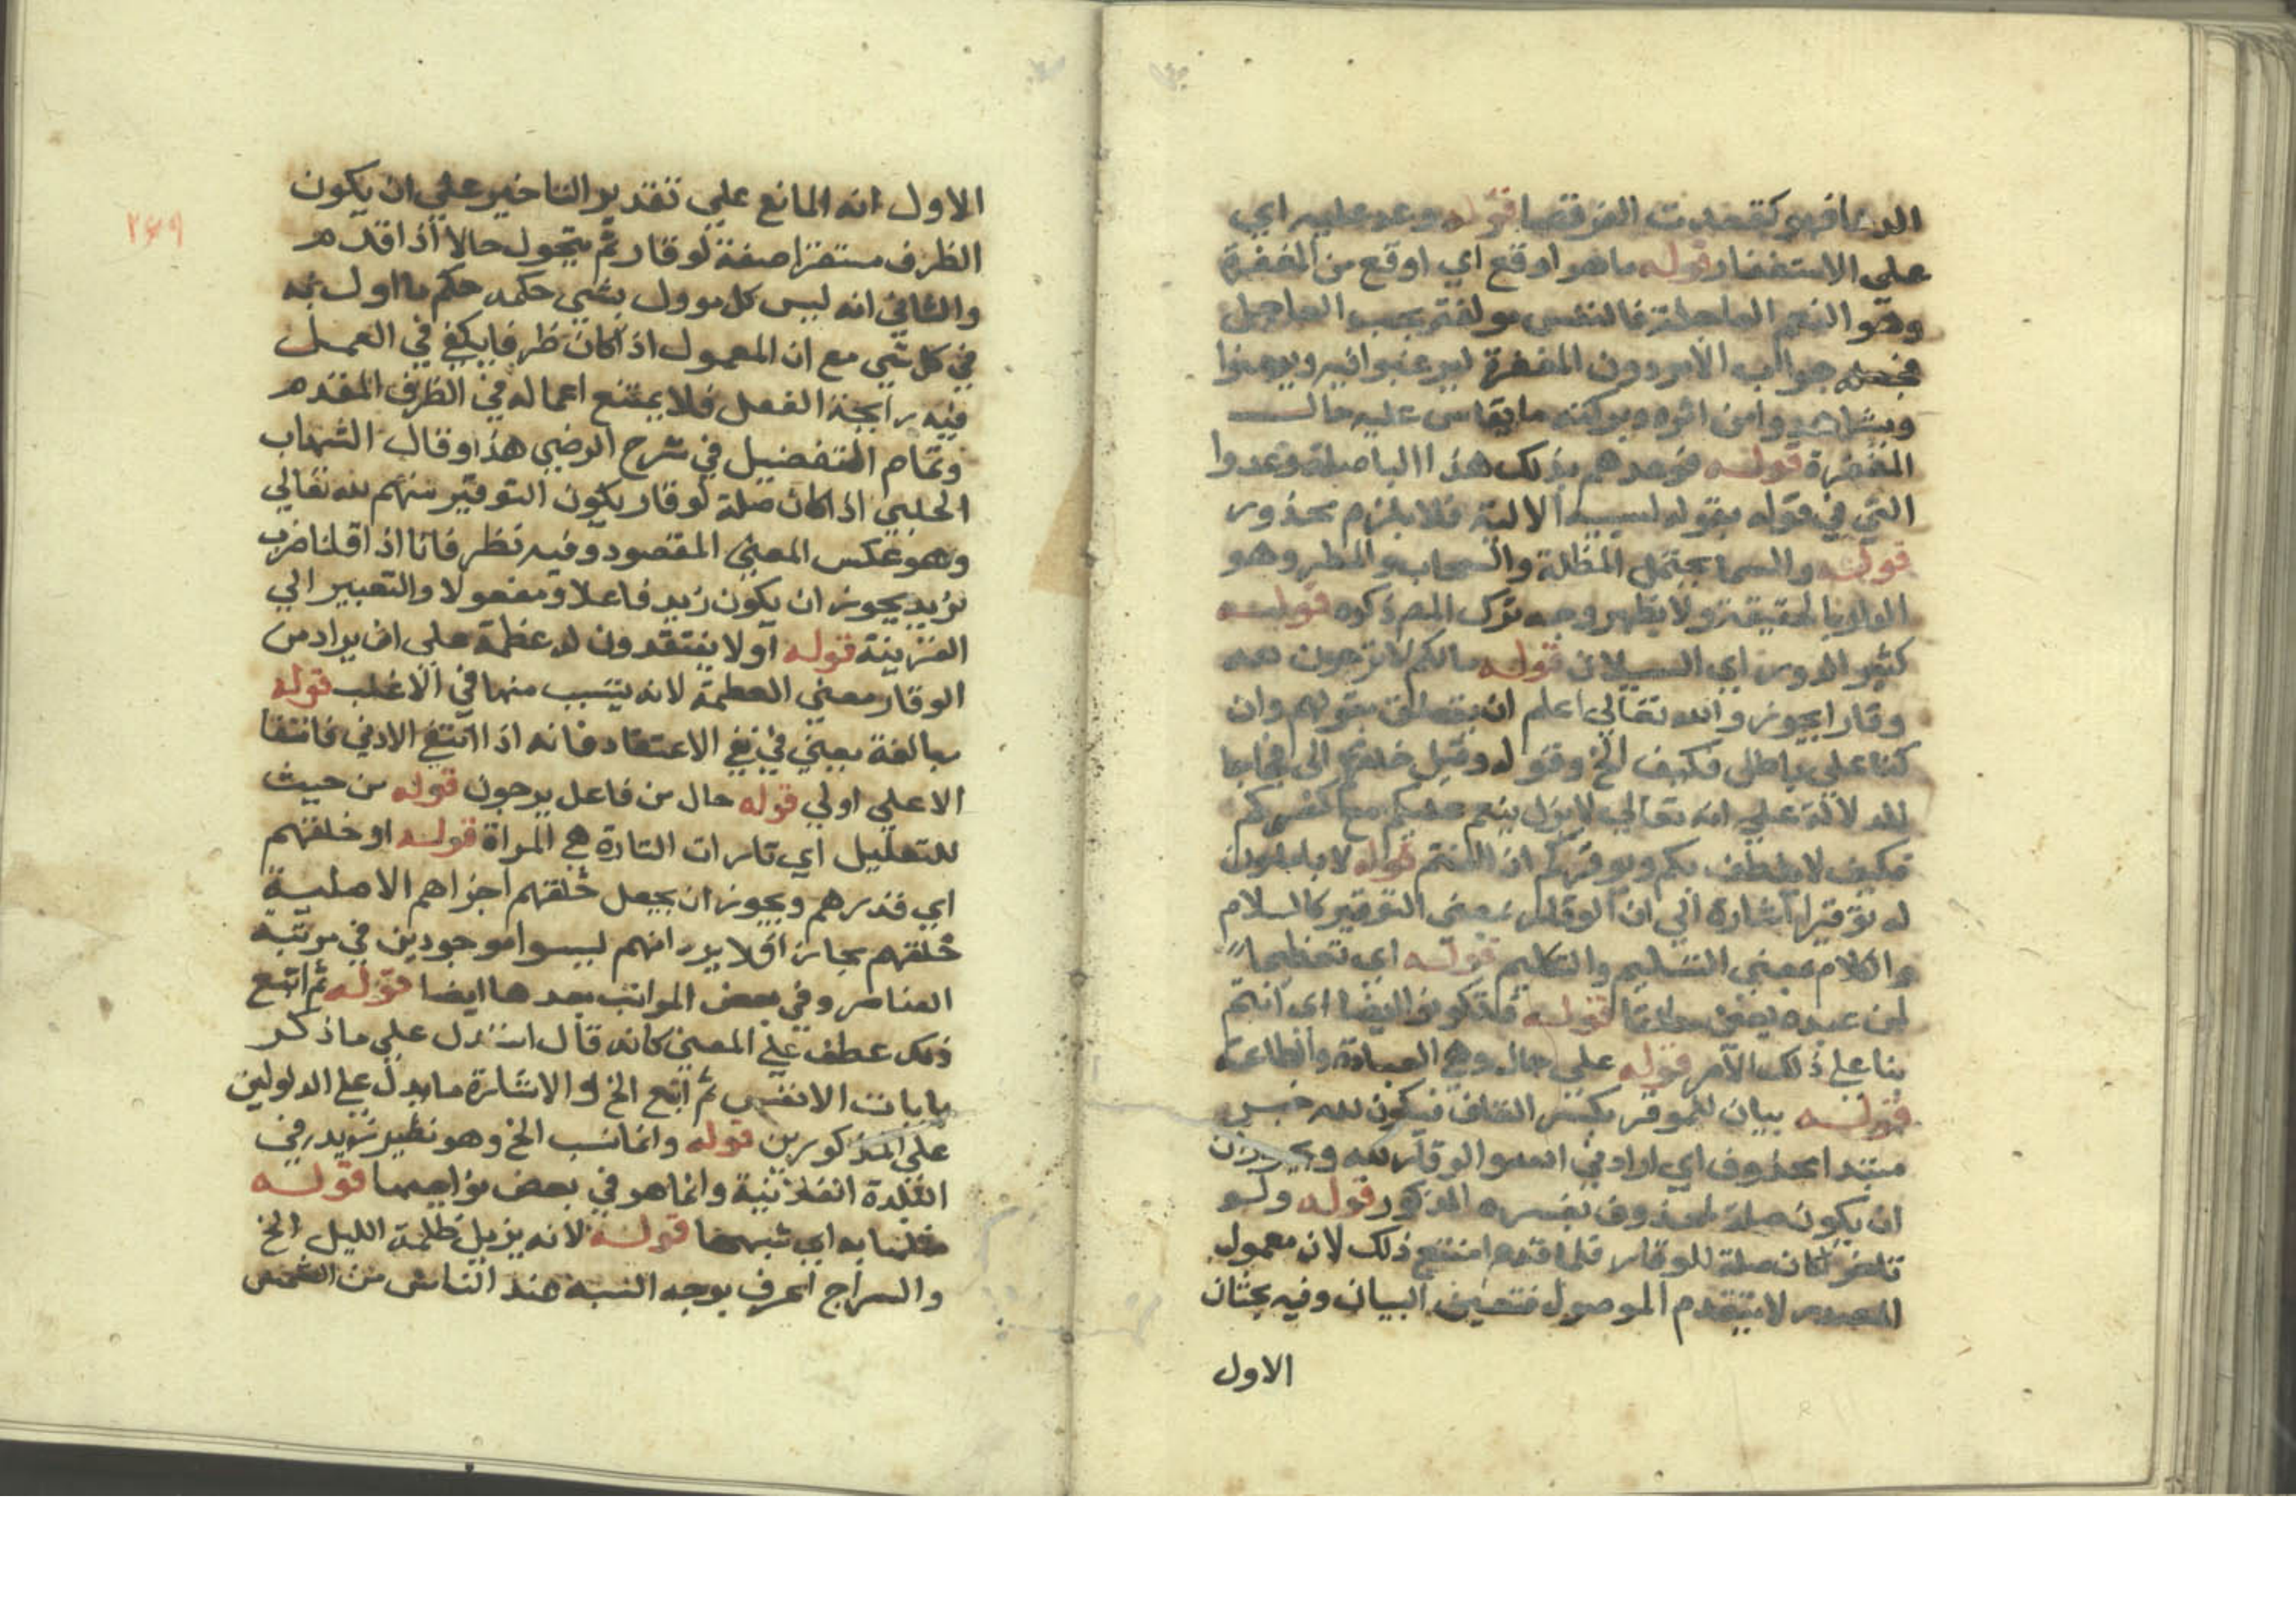 الدعا فهو كقعدت القرفصا قوله وعد عليه اي
علي الاستغفار قوله ما هو اوقع اي اوقع من المغفرة
وهو النعم العاجلة فالنفس مولعة بحب العاجل
جواب الامر دون المغفرة ليرغبوا فيه
ويشاهدوا من اثره وبركته ما يقاس عليه حال
المغفرة قوله فوعدهم بذلك هذا
التي في قوله بقوله الاتية فلا يلزم محذور
قوله والسما يحتمل المظلة والسحاب والمطر وهو
ولا يظهر وجه ترك المص ذكره قوله
كثير الدرور اي السيلان قوله ما لكم لا ترجون لله
وقارا يجوز والله تعالي اعلم ان يتعلق بقولهم وان
كنا علي باطل فكيف الخ وقوله وقيل
للدلالة علي انه تعالي لا يزل ينعم عليكم مع كفركم
فكيف لا يلطف بكم ويوقركم ان امنتم قوله لا تاملون
له توقيرا اشارة الي ان الوقار بمعني التوقير كالسلام
والكلام بمعني التسليم والتكليم قوله اي تعظيما
لمن عبده قوله فتكونوا اي انتم
بنا علي ذلك الامر قوله علي حال وهي العبادة والطاعة
قوله بيان للموقر بكسر القاف فيكون لله خبر
مبتدا محذوف اي ارادتي الوقار لله ويجوز
ان يكون صلة لمحذوف يفسره المذكور قوله ولو
تاخر لكان صلة للوقار فلما قدم امتنع ذلك لان معمول
المصدر لا يتقدم الموصول فتعين البيان وفيه بحثان
الاول
٢٦٩
الاول انه المانع علي تقدير التاخير علي ان يكون
الظرف مستقرا صفة لوقار ثم يتحول حالا اذا قدم
والثاني انه ليس كل موول بشي حكمه حكم ما اول به
في كل شي مع ان المعمول اذا كان ظرفا يكفي في العمل
فيه رايحة الفعل فلا يمتنع اعماله في الظرف المقدم
وتمام التفصيل في شرح الرضي هذا وقال الشهاب
الحلبي اذا كان صلة لوقار يكون التوقير منهم لله تعالي
وهو عكس المعني المقصود وفيه نظر فانا اذا قلنا ضرب
زيد يجوز ان يكون زيد فاعلا ومفعولا والتعبير الي
القرينة قوله او لا يعتقدون له عظمة علي ان يراد من
الوقار معني العظمة لانه يتسبب منها في الاغلب قوله
مبالغة يعني في نفي الاعتقاد فانه اذا انتفي الادني فانتفا
الاعلي اولي قوله حال من فاعل يرجون قوله من حيث
للتعليل اي تارات التارة هي المراة قوله او خلقتهم
اي قدرهم ويجوز ان يجعل خلقهم اجزاهم الاصلية
خلقهم مجازا فلا يرد انهم ليسوا موجودين في مرتبة
العناصر وفي بعض المراتب بعدها ايضا قوله ثم اتبع
ذلك عطف علي المعني كانه قال استدل علي ما ذكر
بايات الانفس ثم اتبع الخ والاشارة ما يدل علي المدلولين
علي المذكورين قوله وانما نسب الخ وهو نظير زيد في
البلدة الفلانية وانما هو في بعض نواحيها قوله
مثلها به اي شبهها قوله لانه يزيل ظلمة الليل الخ
والسراج اعرف بوجه الشبه عند الناس من الشمس